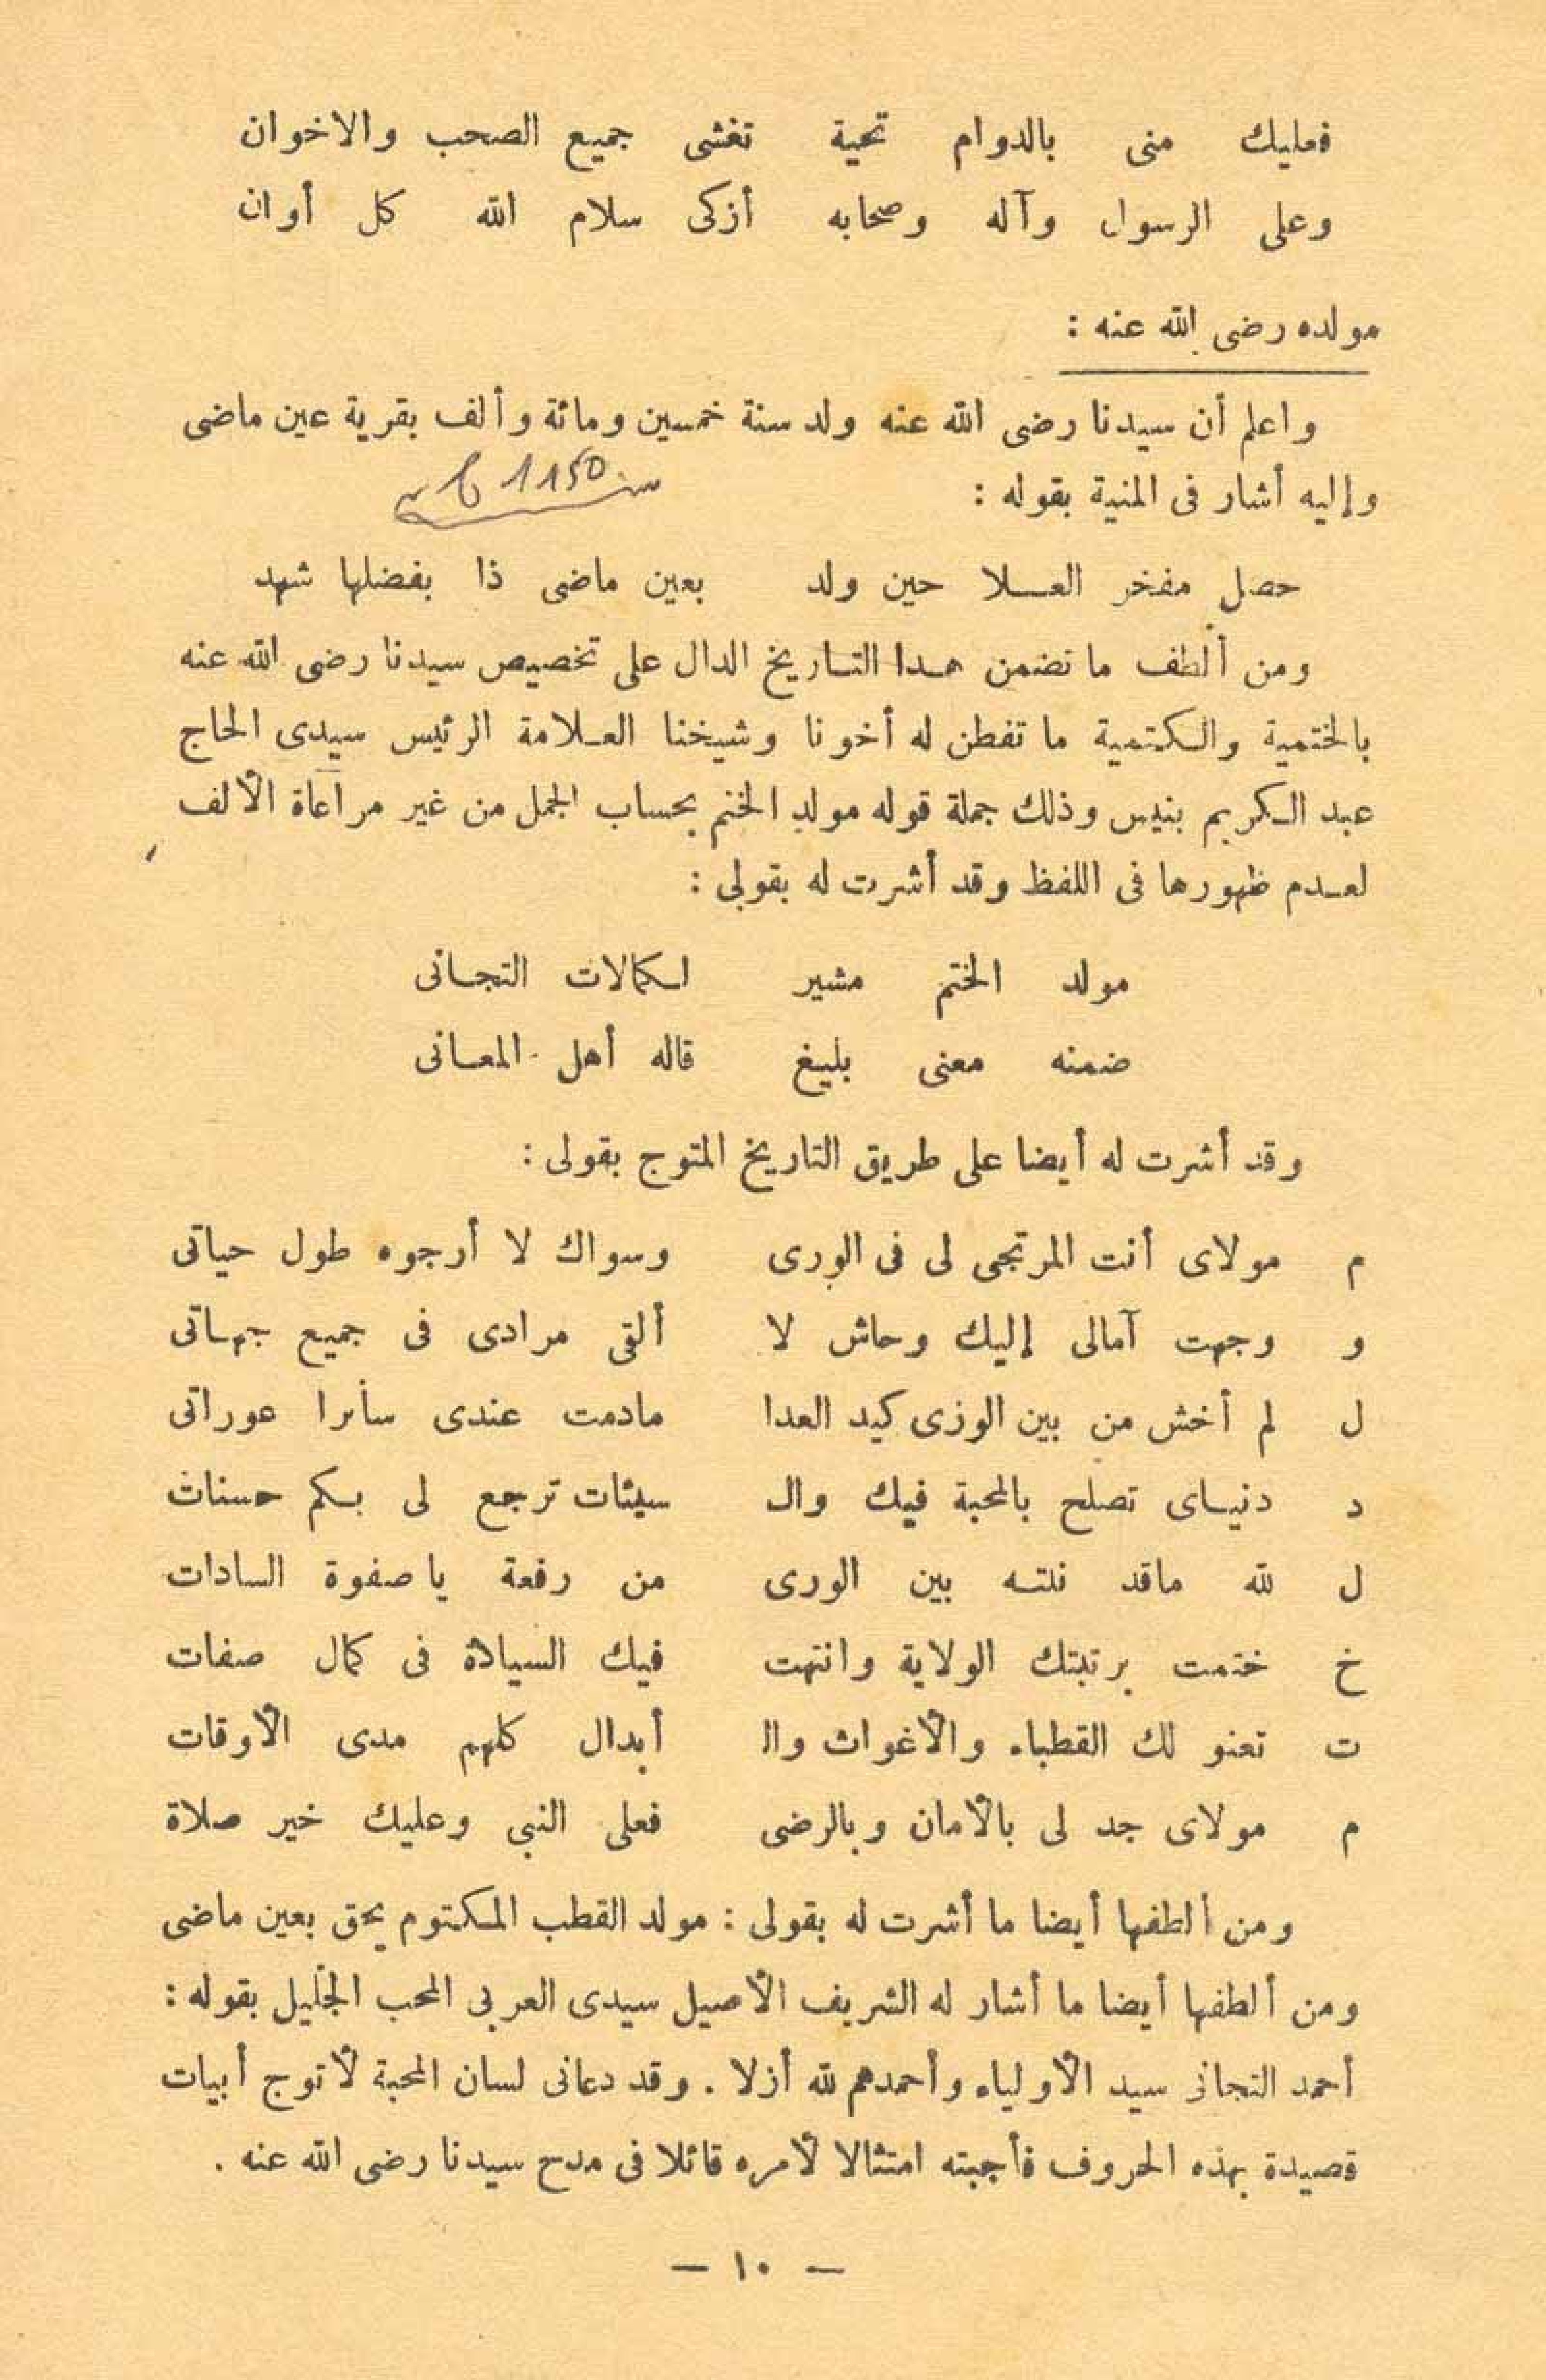 فعليك منى بالدوام تحية تغشى جميع الصحب والاخوان
وعلى الرسول وآله وصحابه أزكى سلام الله كل أوان
مولده رضى الله عنه :
واعلم أن سيدنا رضى الله عنه ولد سنة خمسين ومائة وألف بقرية عين ماضى
وإليه أشار فى المنية بقوله :
1150
حصل مفخر العلا حين ولد بعين ماضى ذا بفضلها شهد
ومن ألطف ما تضمن هدا التاريخ الدال على تخصيص سيدنا رضى الله عنه
بالختمية والكتمية ما تفطن له أخونا وشيخنا العلامة الرئيس سيدى الحاج
عبد الكريم بنيس وذلك جملة قوله مولد الختم بحساب الجمل من غير مراعاة الألف
لعدم ظهورها فى اللفظ وقد أشرت له بقولى :
مولد الختم مشير لكمالات التجانى
ضمنه معنى بليغ قاله أهل المعانى
وقد أشرت له أيضا على طريق التاريخ المتوج بقولى :
م مولاى أنت المرتجى لى فى الورى وسواك لا أرجوه طول حياتى
و وجهت آمالى إليك وحاش لا ألقى مرادى فى جميع جهاتى
ل لم أخش من بين الوزى كيد العدا مادمت عندى ساترا عوراتى
د دنياى تصلح بالمحبة فيك وال سيئات ترجع لى بكم حسنات
ل لله ماقد نلته بين الورى من رفعة يا صفوة السادات
خ ختمت برتبتك الولاية وانتهت فيك السيادة فى كمال صفات
ت تعنو لك القطباء والأغواث وال أبدال كلهم مدى الأوقات
م مولاى جد لى بالأمان وبالرضى فعلى النبى وعليك خير صلاة
ومن ألطفها أيضا ما أشرت له بقولى : مولد القطب المكتوم يحق بعين ماضى
ومن ألطفها أيضا ما أشار له الشريف الأصيل سيدى العربى المحب الجليل بقوله :
أحمد التجانى سيد الأولياء وأحمدهم لله أزلا . وقد دعانى لسان المحبة لأتوج أبيات
قصيدة بهذه الحروف فأجبته امتثالا لأمره قائلا فى مدح سيدنا رضى الله عنه .
— ١٠ —